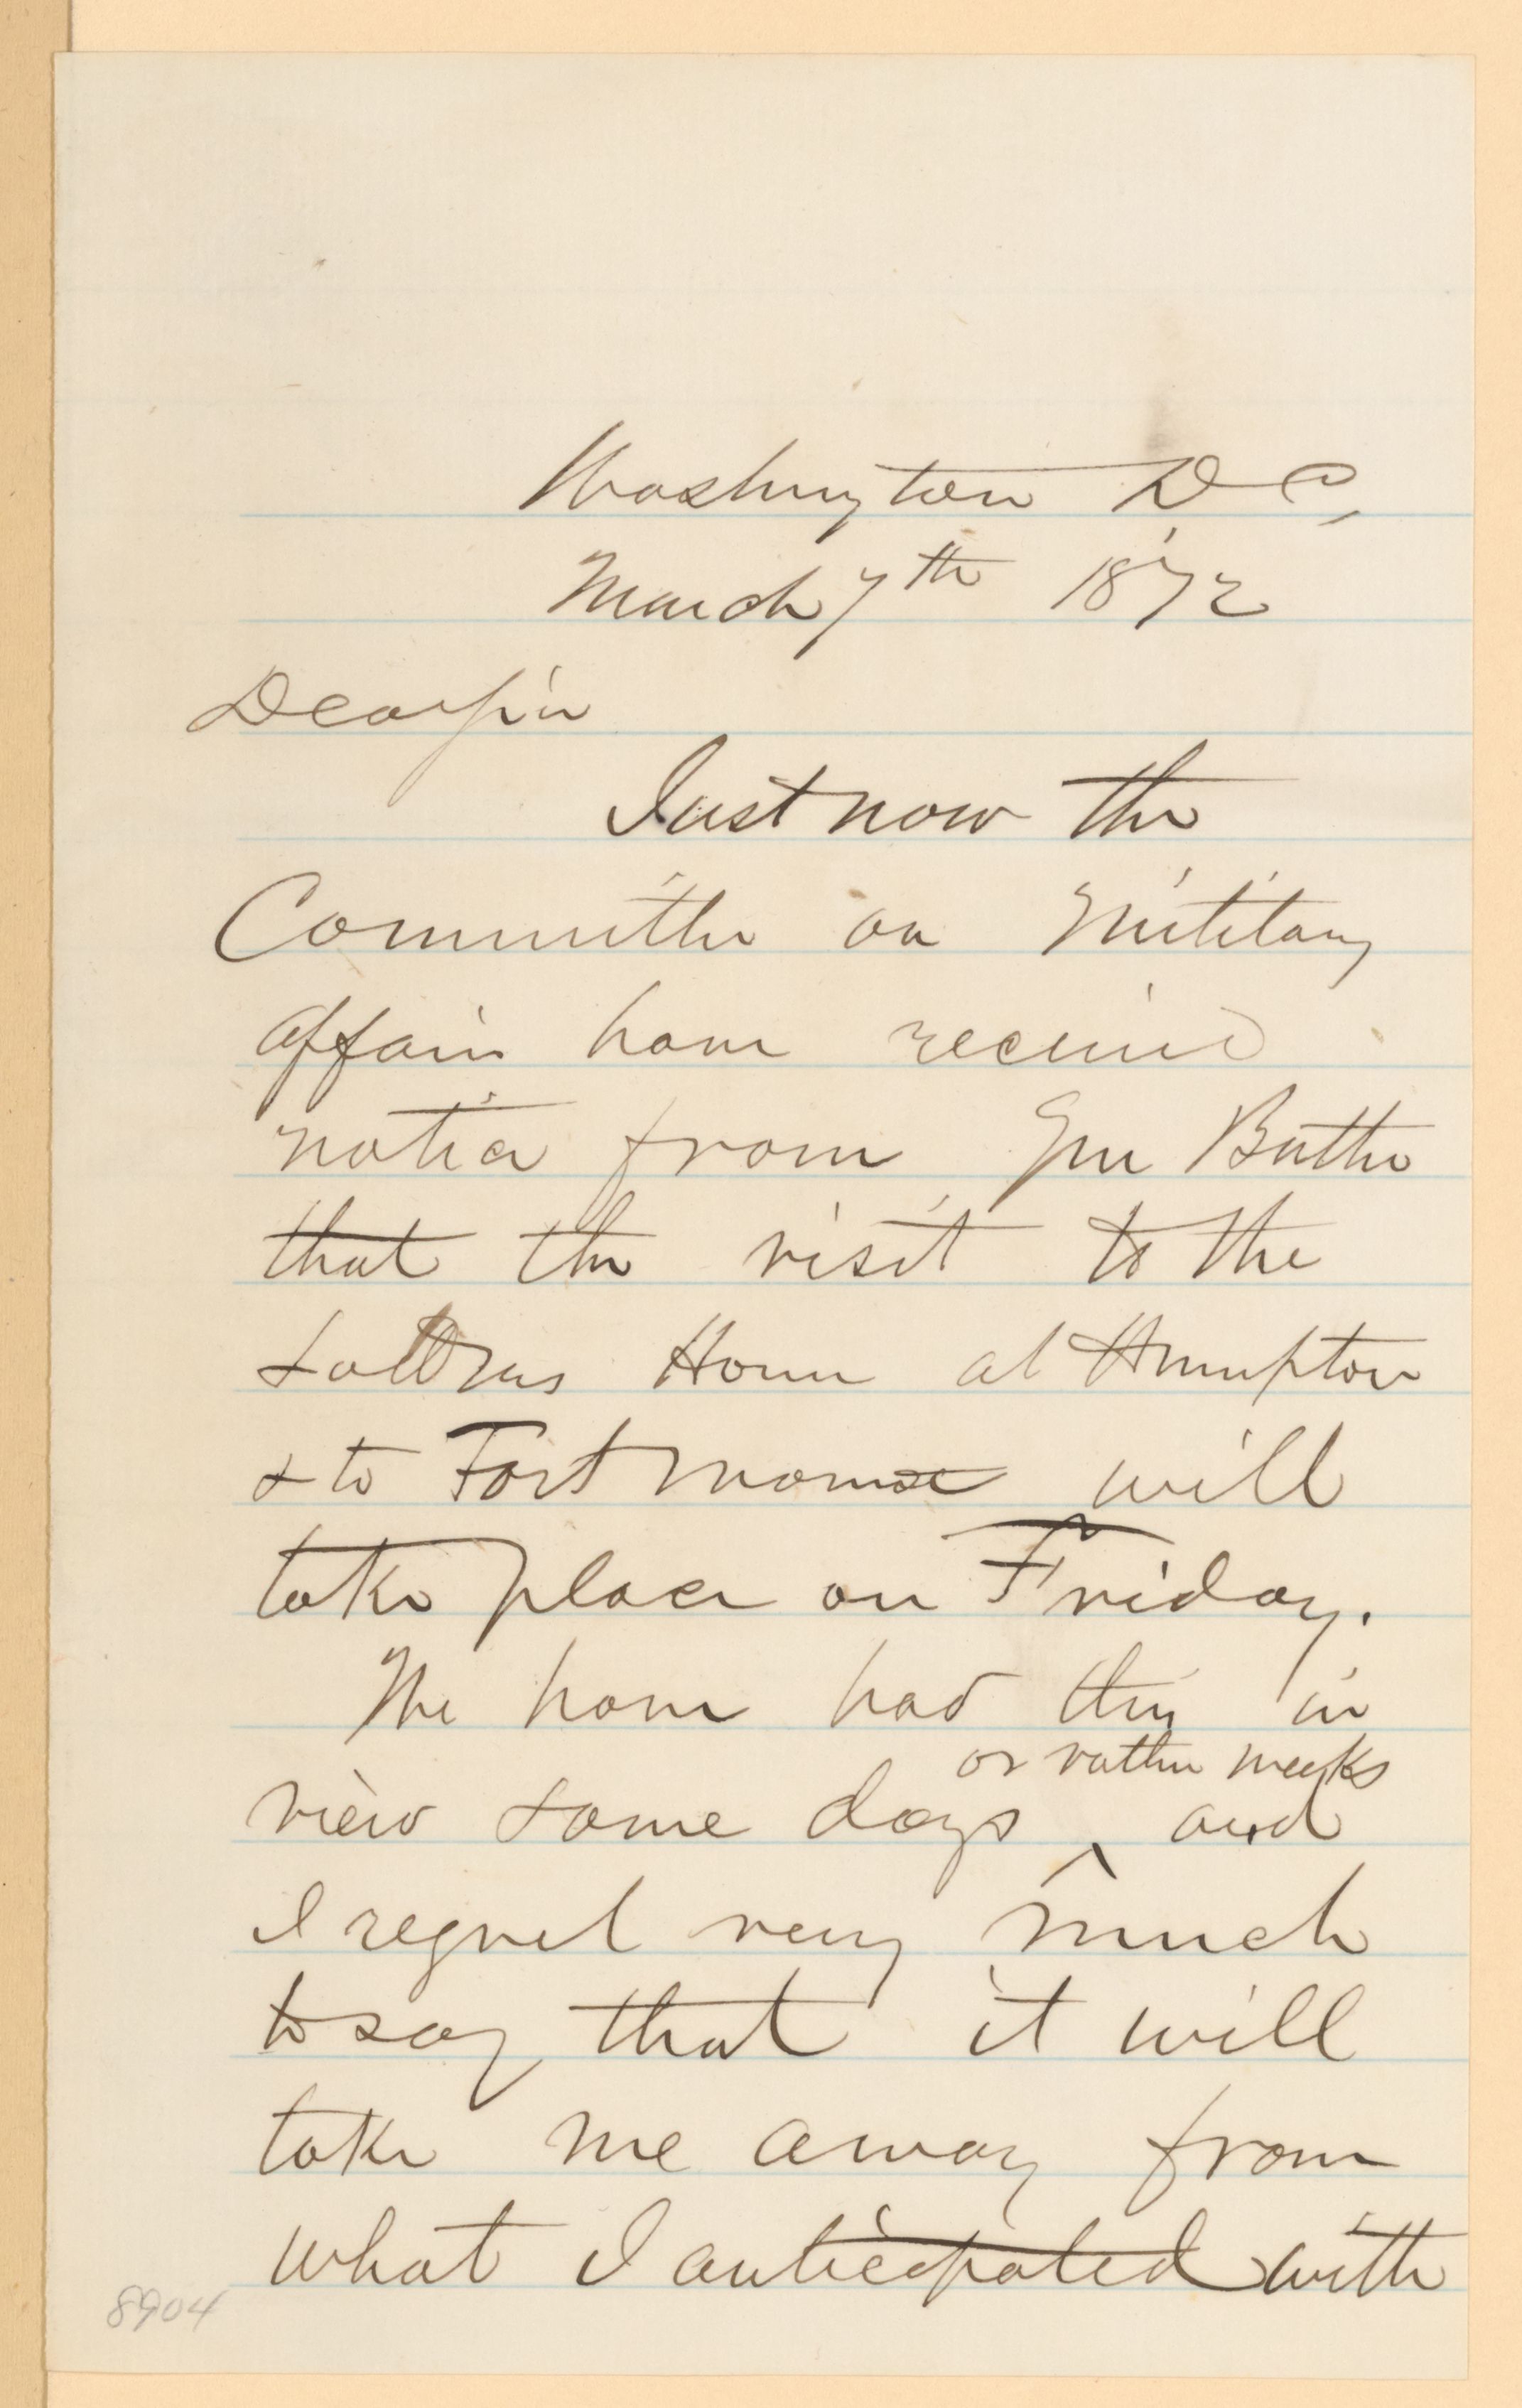 Washington D C,
March 7th 1872
Dear Sir
Just now the
Committee on Military
affairs have received
notice from Gen Butler
that the visit to the
Soldiers Home at Hampton
& to Fort Monroe will
take place on Friday.
We have had this in
or rather weeks
view some days ^ and
I regret very much
to say that it will
take me away from
what I anticipated with
8904